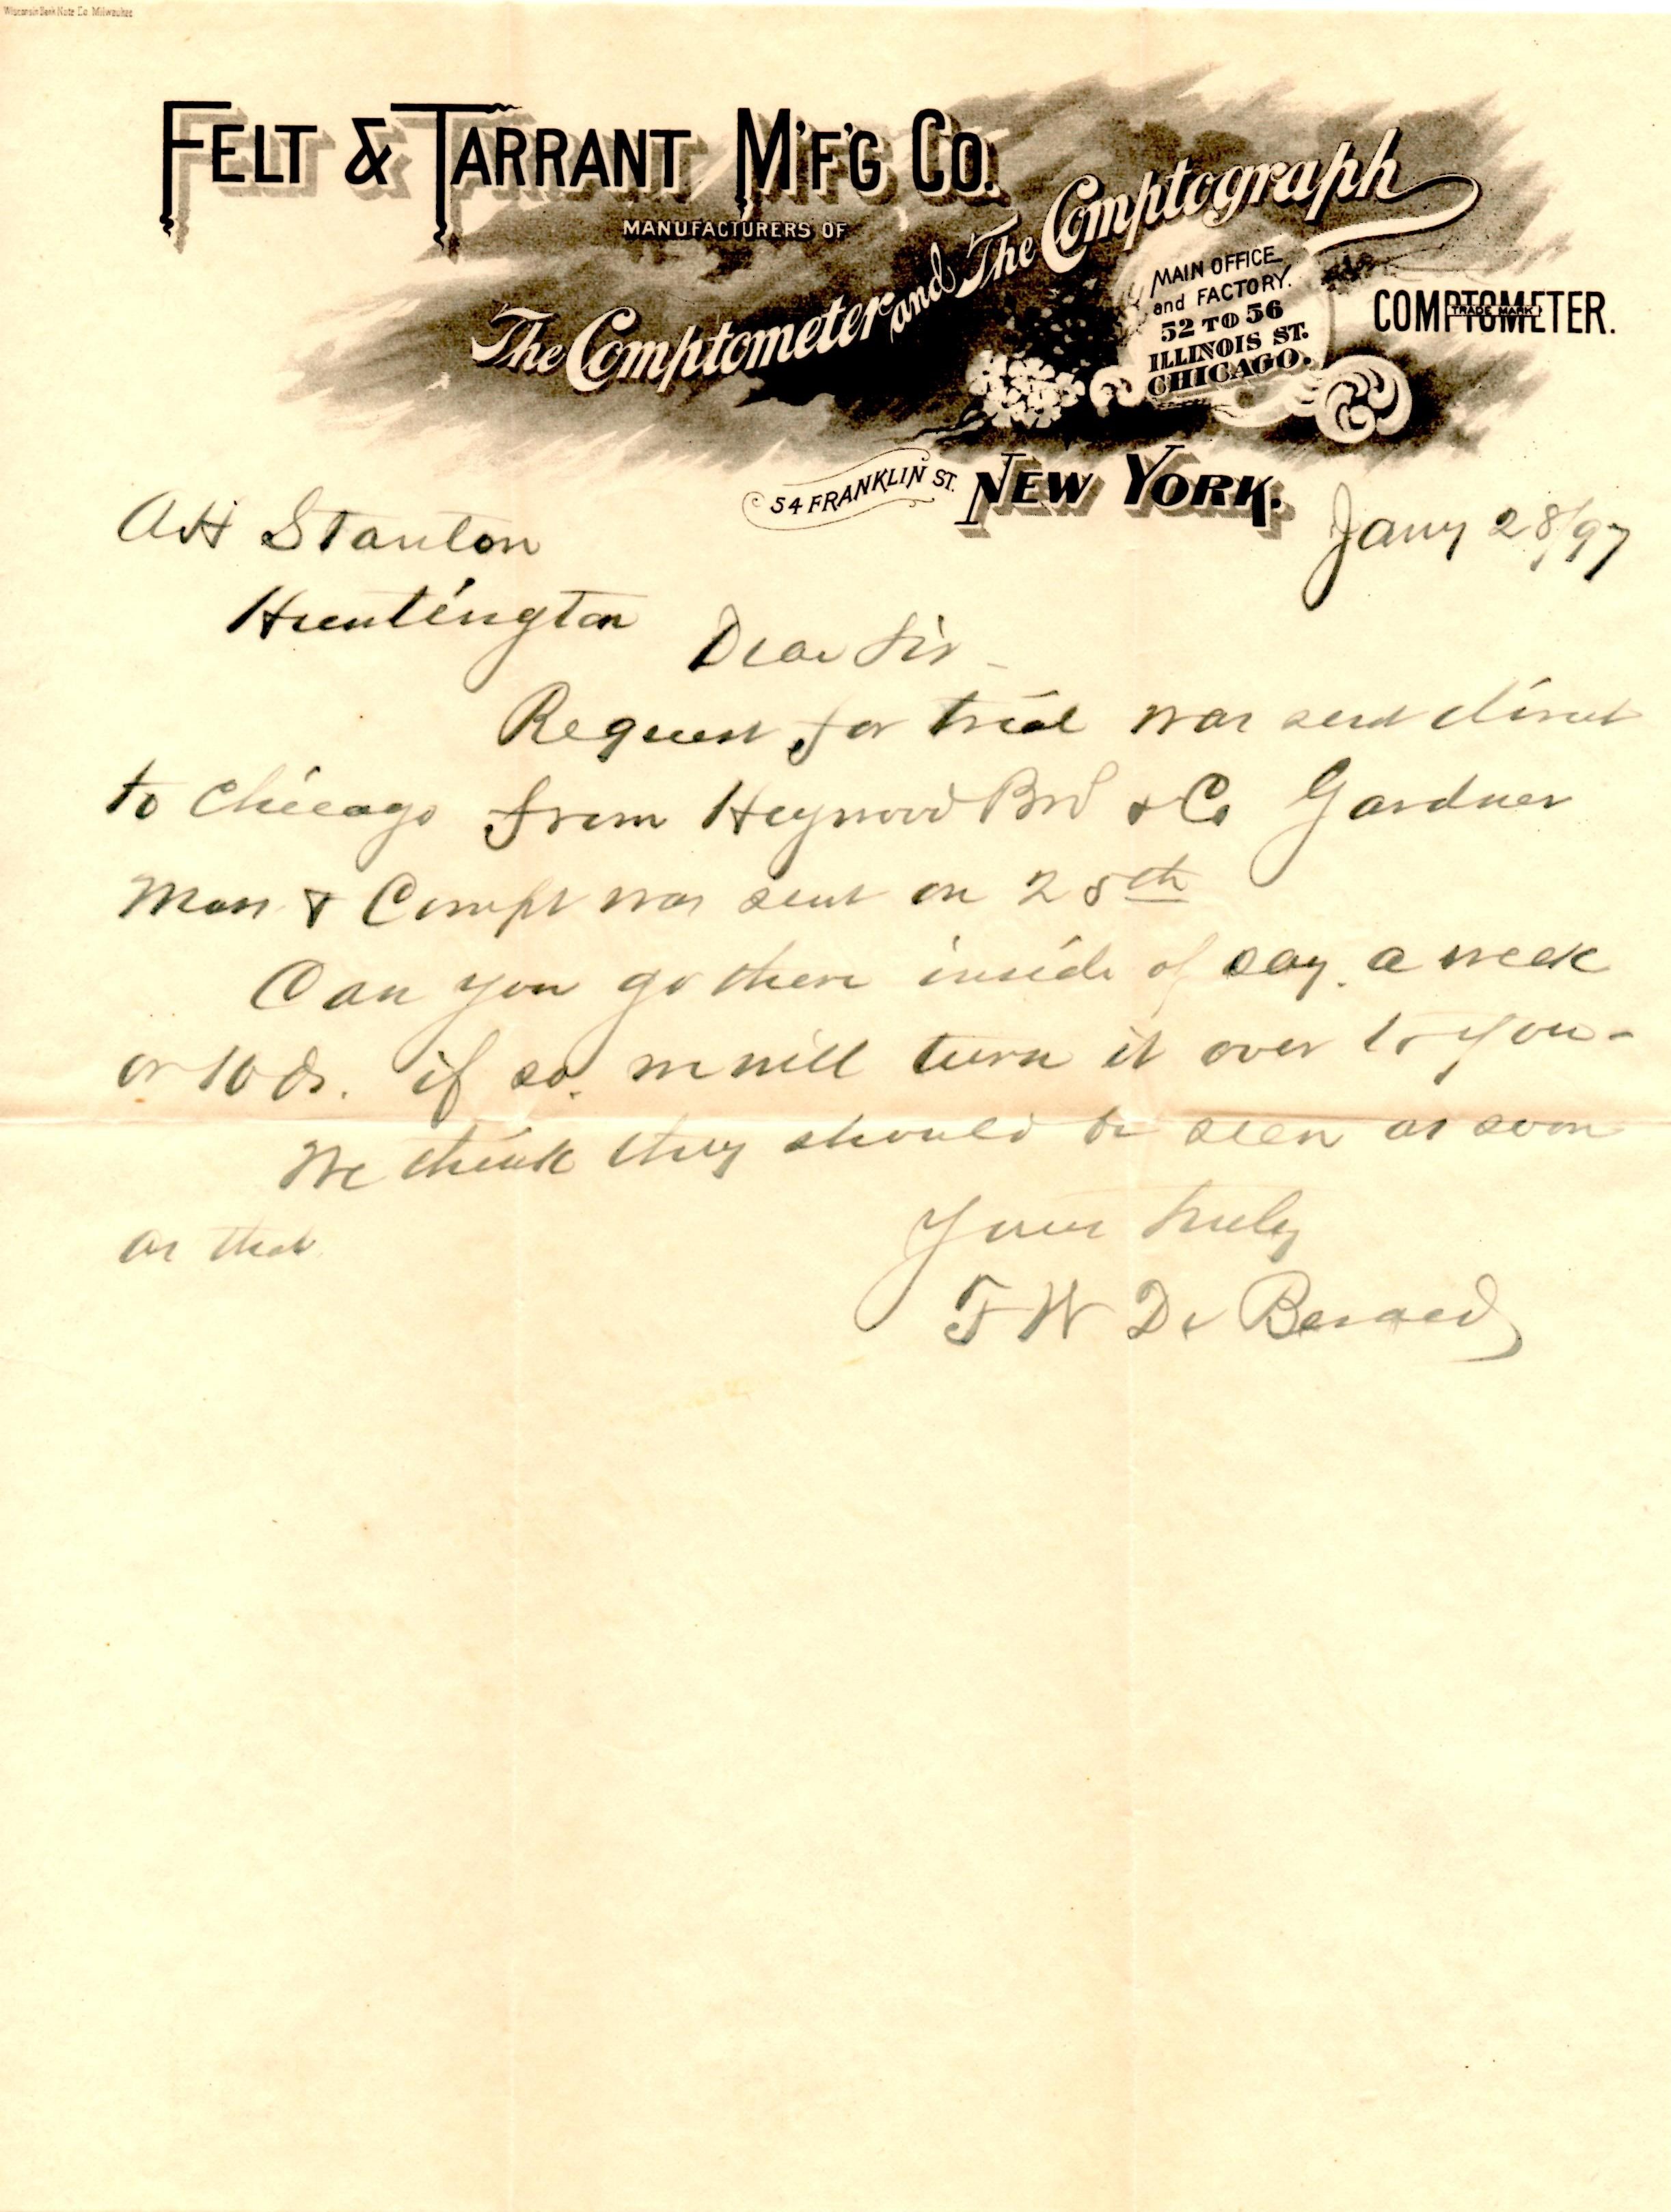 Wisconsin Bank Note Co. Milwaukee
FELT & TARRANT M'F'G CO.
MANUFACTURERS OF
The Comptometer and The Comptograph
MAIN OFFICE
and FACTORY.
52 TO 56
ILLINOIS ST.
CHICAGO.
COMPTOMETER.
TRADE MARK
54 FRANKLIN ST. NEW YORK.
Jany 28/97
Stanton
Huntington
Dear Sir -
Request for trial was sent direct
to Chicago from Heywood Bro & Co Gardner
Mass & Compt was sent on 25th
Can you go there inside of say a week
or 10 ds. if so, we will turn it over to you -
We think they should be seen as soon
as that
Yours truly
F W De Berard